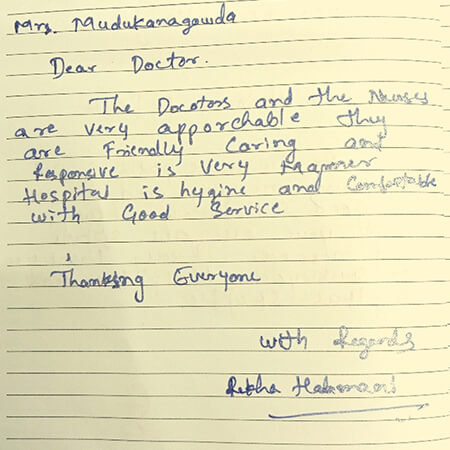 Mrs. Mudukanagowda
Dear Doctor.
The Docotors and the Nurses
are very apporchable they
are Friendly Caring and
Responsive is Very
Hospital is hygine and Comfortable
with Good Service
Thanking Everyone
with Regards
Rekha